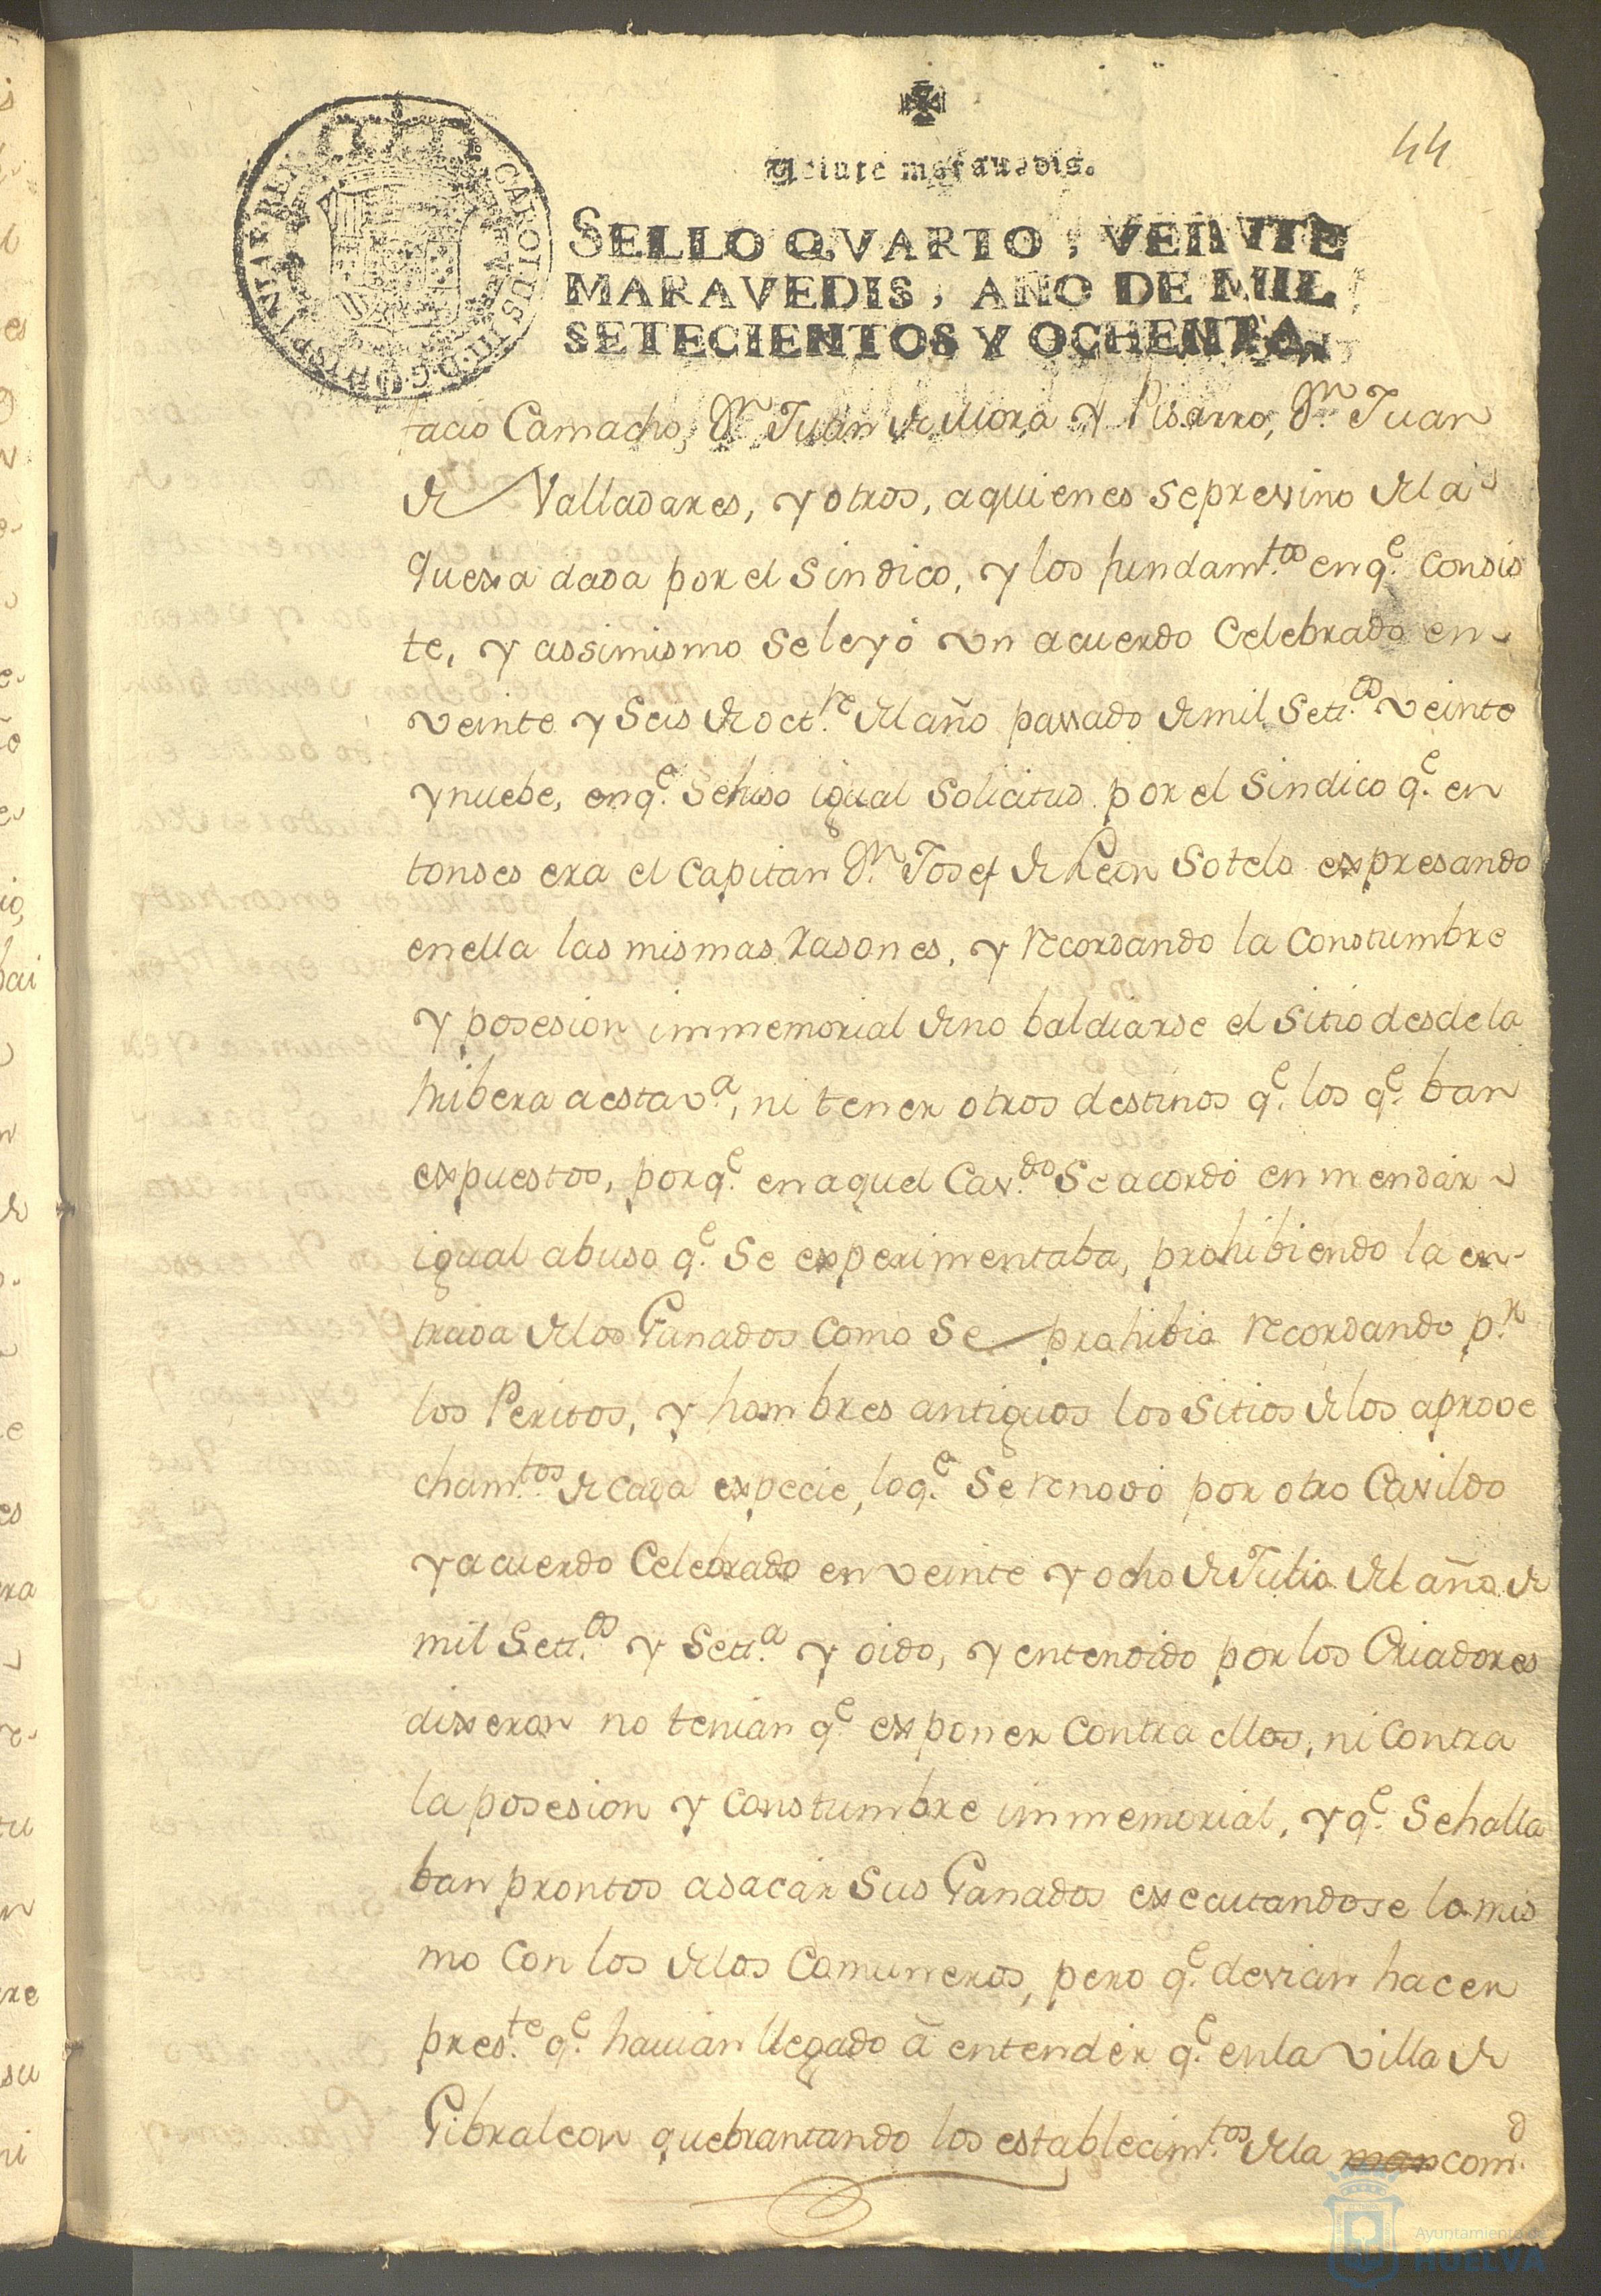 44
Veinte maravedis.
SELLO QVARTO, VEINTE
MARAVEDIS, AÑO DE MIL
SETECIENTOS Y OCHENTA.
CAROLUS III D.G. HISPANIAR REX
tacio Camacho, Dn. Juan de Mora y Pisarro, Dn. Juan
de Valladares, y otros, aquienes se previno dela
quexa dada por el Sindico, y los fundamtos. en qe. Consis
te, y assimismo se leyó un acuerdo Celebrado en
veinte y Seis de octre. del año passado de mil Setzos. veinte
y nuebe, en qe. Sehiso igual Solicitud por el Sindico qe. en
tonses era el Capitan Dn. Josef de Leon Sotelo expresando
en ella las mismas Rasones, y recordando la Constumbre
y posesion immemorial de no baldiarse el Sitio desde la
Ribera a esta va., ni tener otros destinos qe. los qe. ban
expuestos, porqe. en aquel Cavdo. Se acordó enmendar
igual abuso qe. Se experimentaba, prohibiendo la en-
trada delos Ganados como Se prohibio recordando pr.
los Peritos, y hombres antiguos los Sitios delos aprove
chamtos. de cada expecie, loqe. Se renovó por otro Cavildo
y acuerdo Celebrado en veinte y ocho de Julio del año de
mil Setzos. y Setza. y oido, y entendido por los Criadores
dixeron no tenian qe. exponer Contra ellos, ni Contra
la posesion y Constumbre immemorial, y qe. Sehalla
ban prontos asacar Sus Ganados executandose lo mis
mo con los delos Comuneros, pero qe. devian hacer
preste. qe. havian llegado à entender qe. enla villa de
Gibraleon quebrantando los establecimtos. dela man comd.
Ayuntamiento de
HUELVA